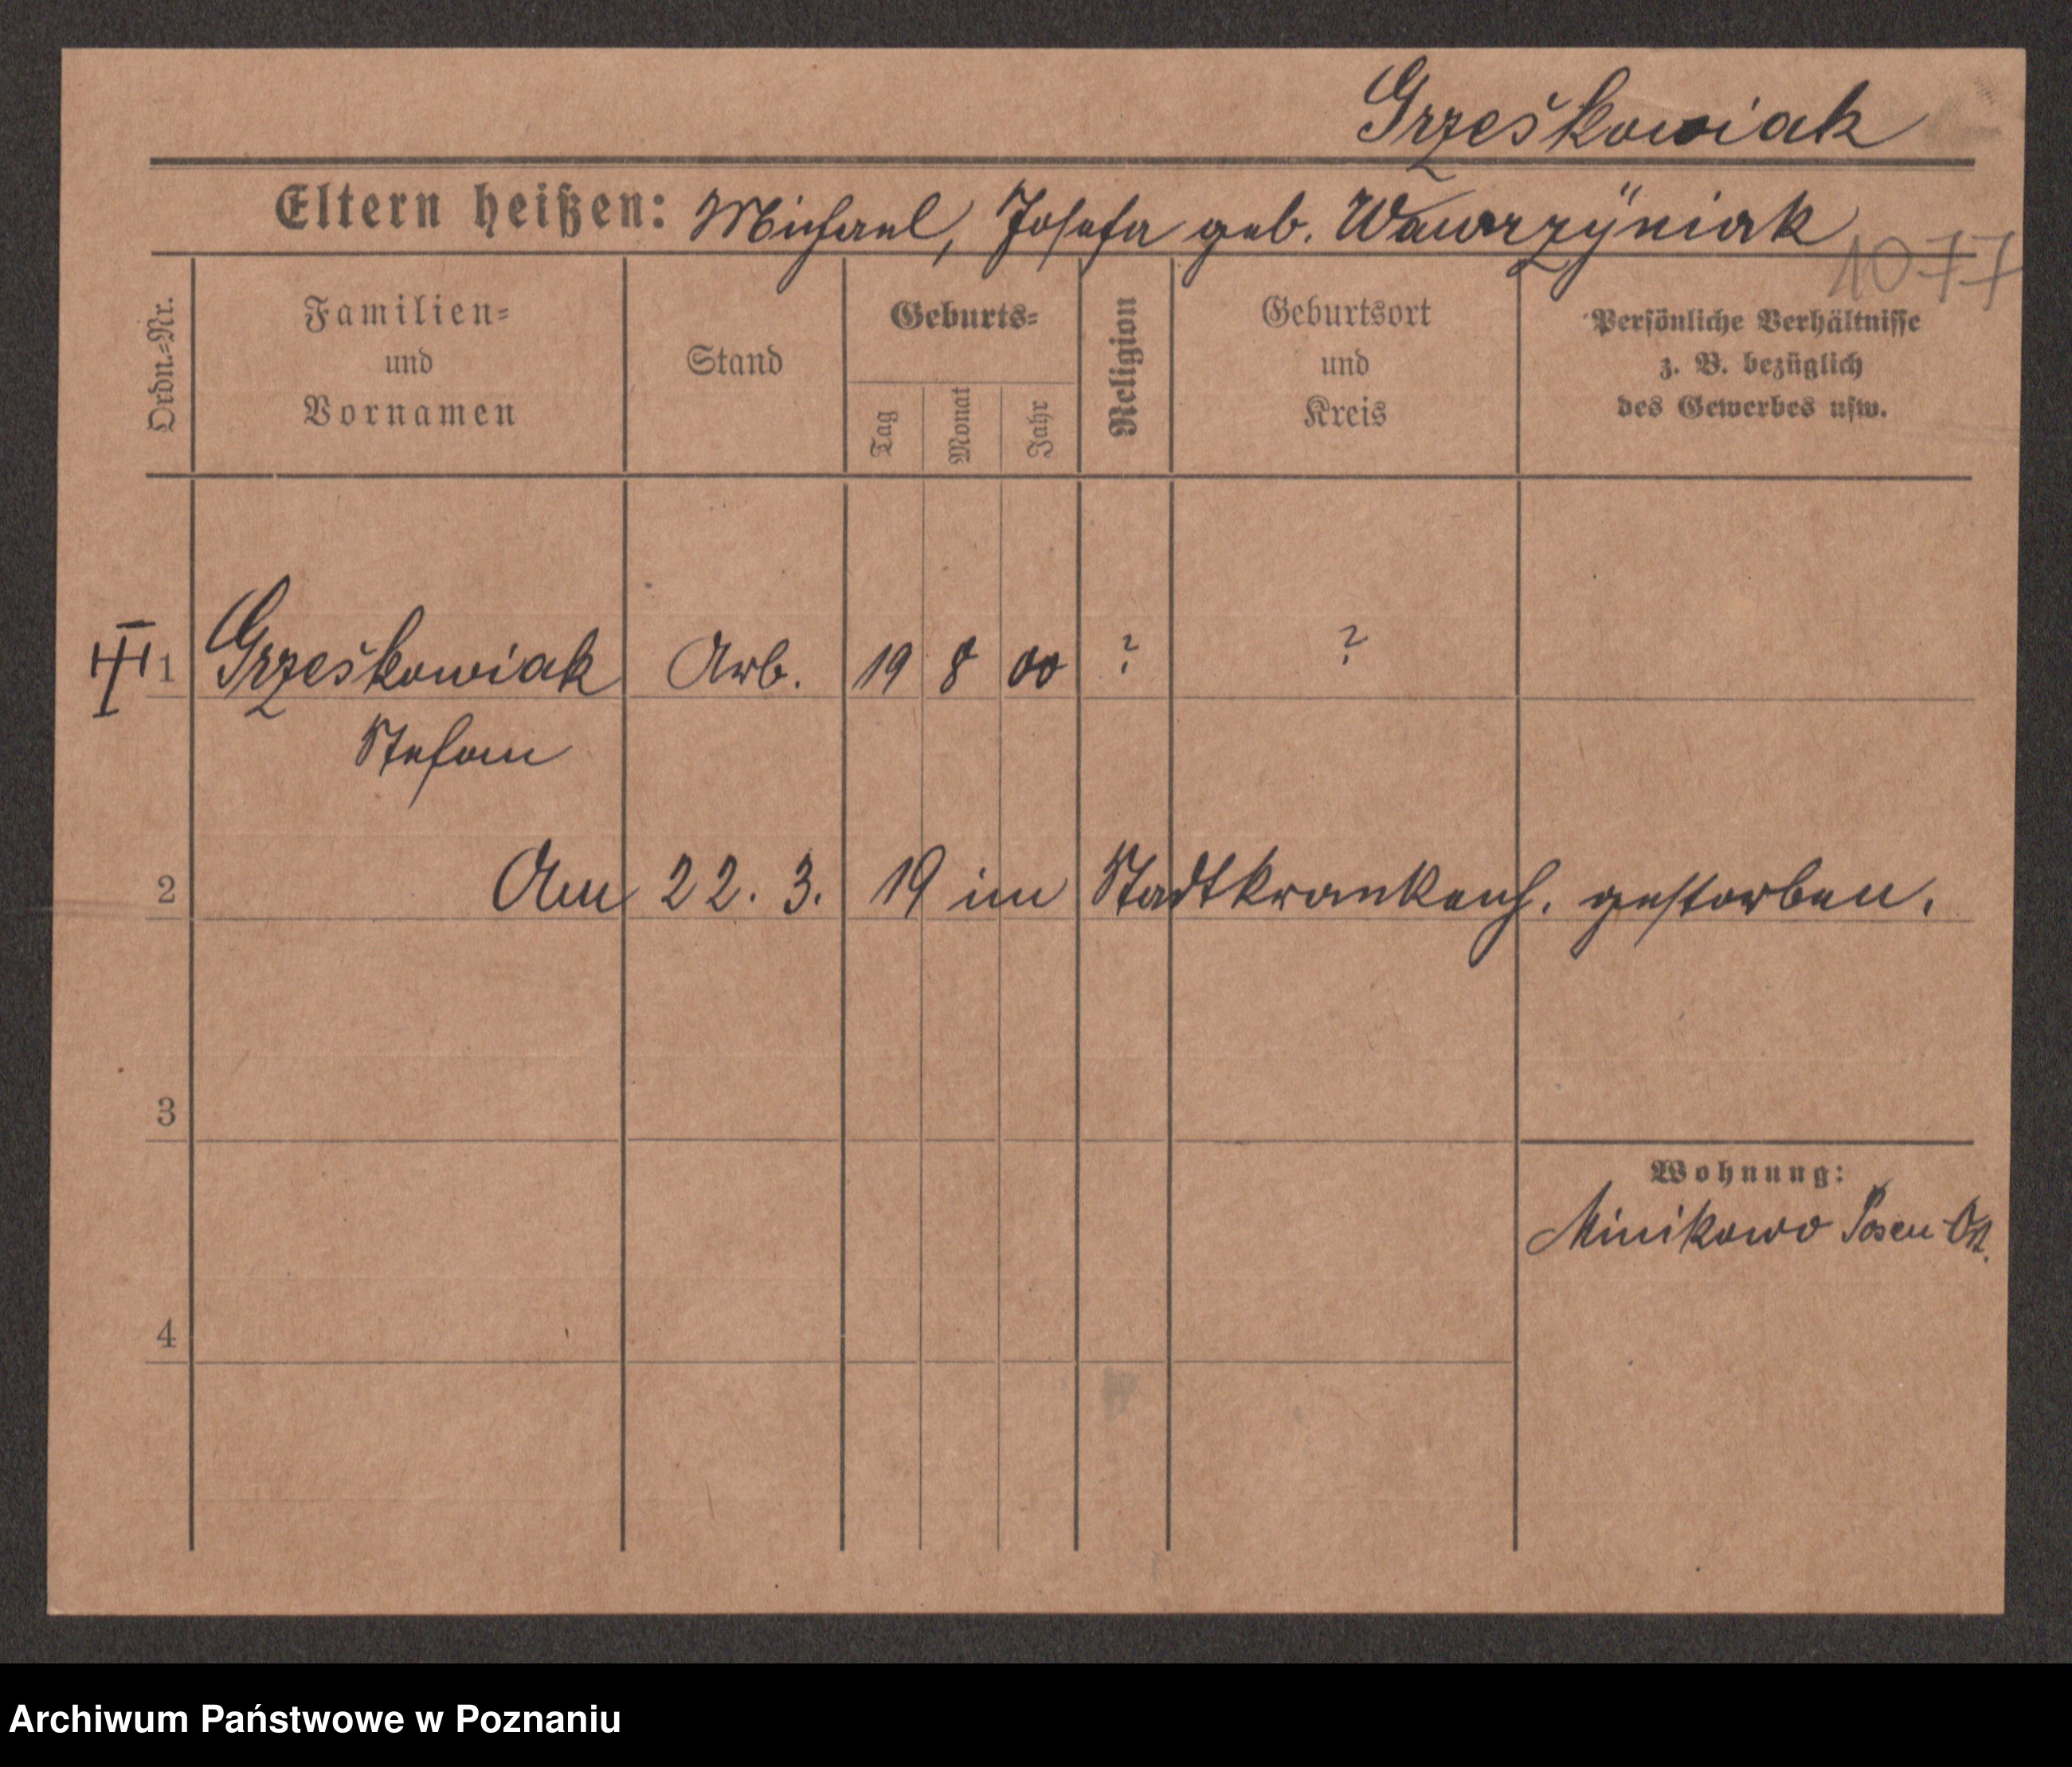 Grzeškowiak
Eltern heißen: Michael, Josefa geb. Wawrzÿniak
1077
Ordn.=Nr.
Familien=
und
Vornamen
Stand
Geburts=
Tag
Monat
Jahr
Religion
Geburtsort
und
Kreis
Persönliche Verhältnisse
z. B. bezüglich
des Gewerbes usw.
1 Grzeškowiak Arb. 19 8 00 ? ?
Stefan
2 Am 22. 3. 19 im Stadtkrankenh. gestorben.
3
Wohnung:
Minikowo Posen Ost.
4
Archiwum Państwowe w Poznaniu